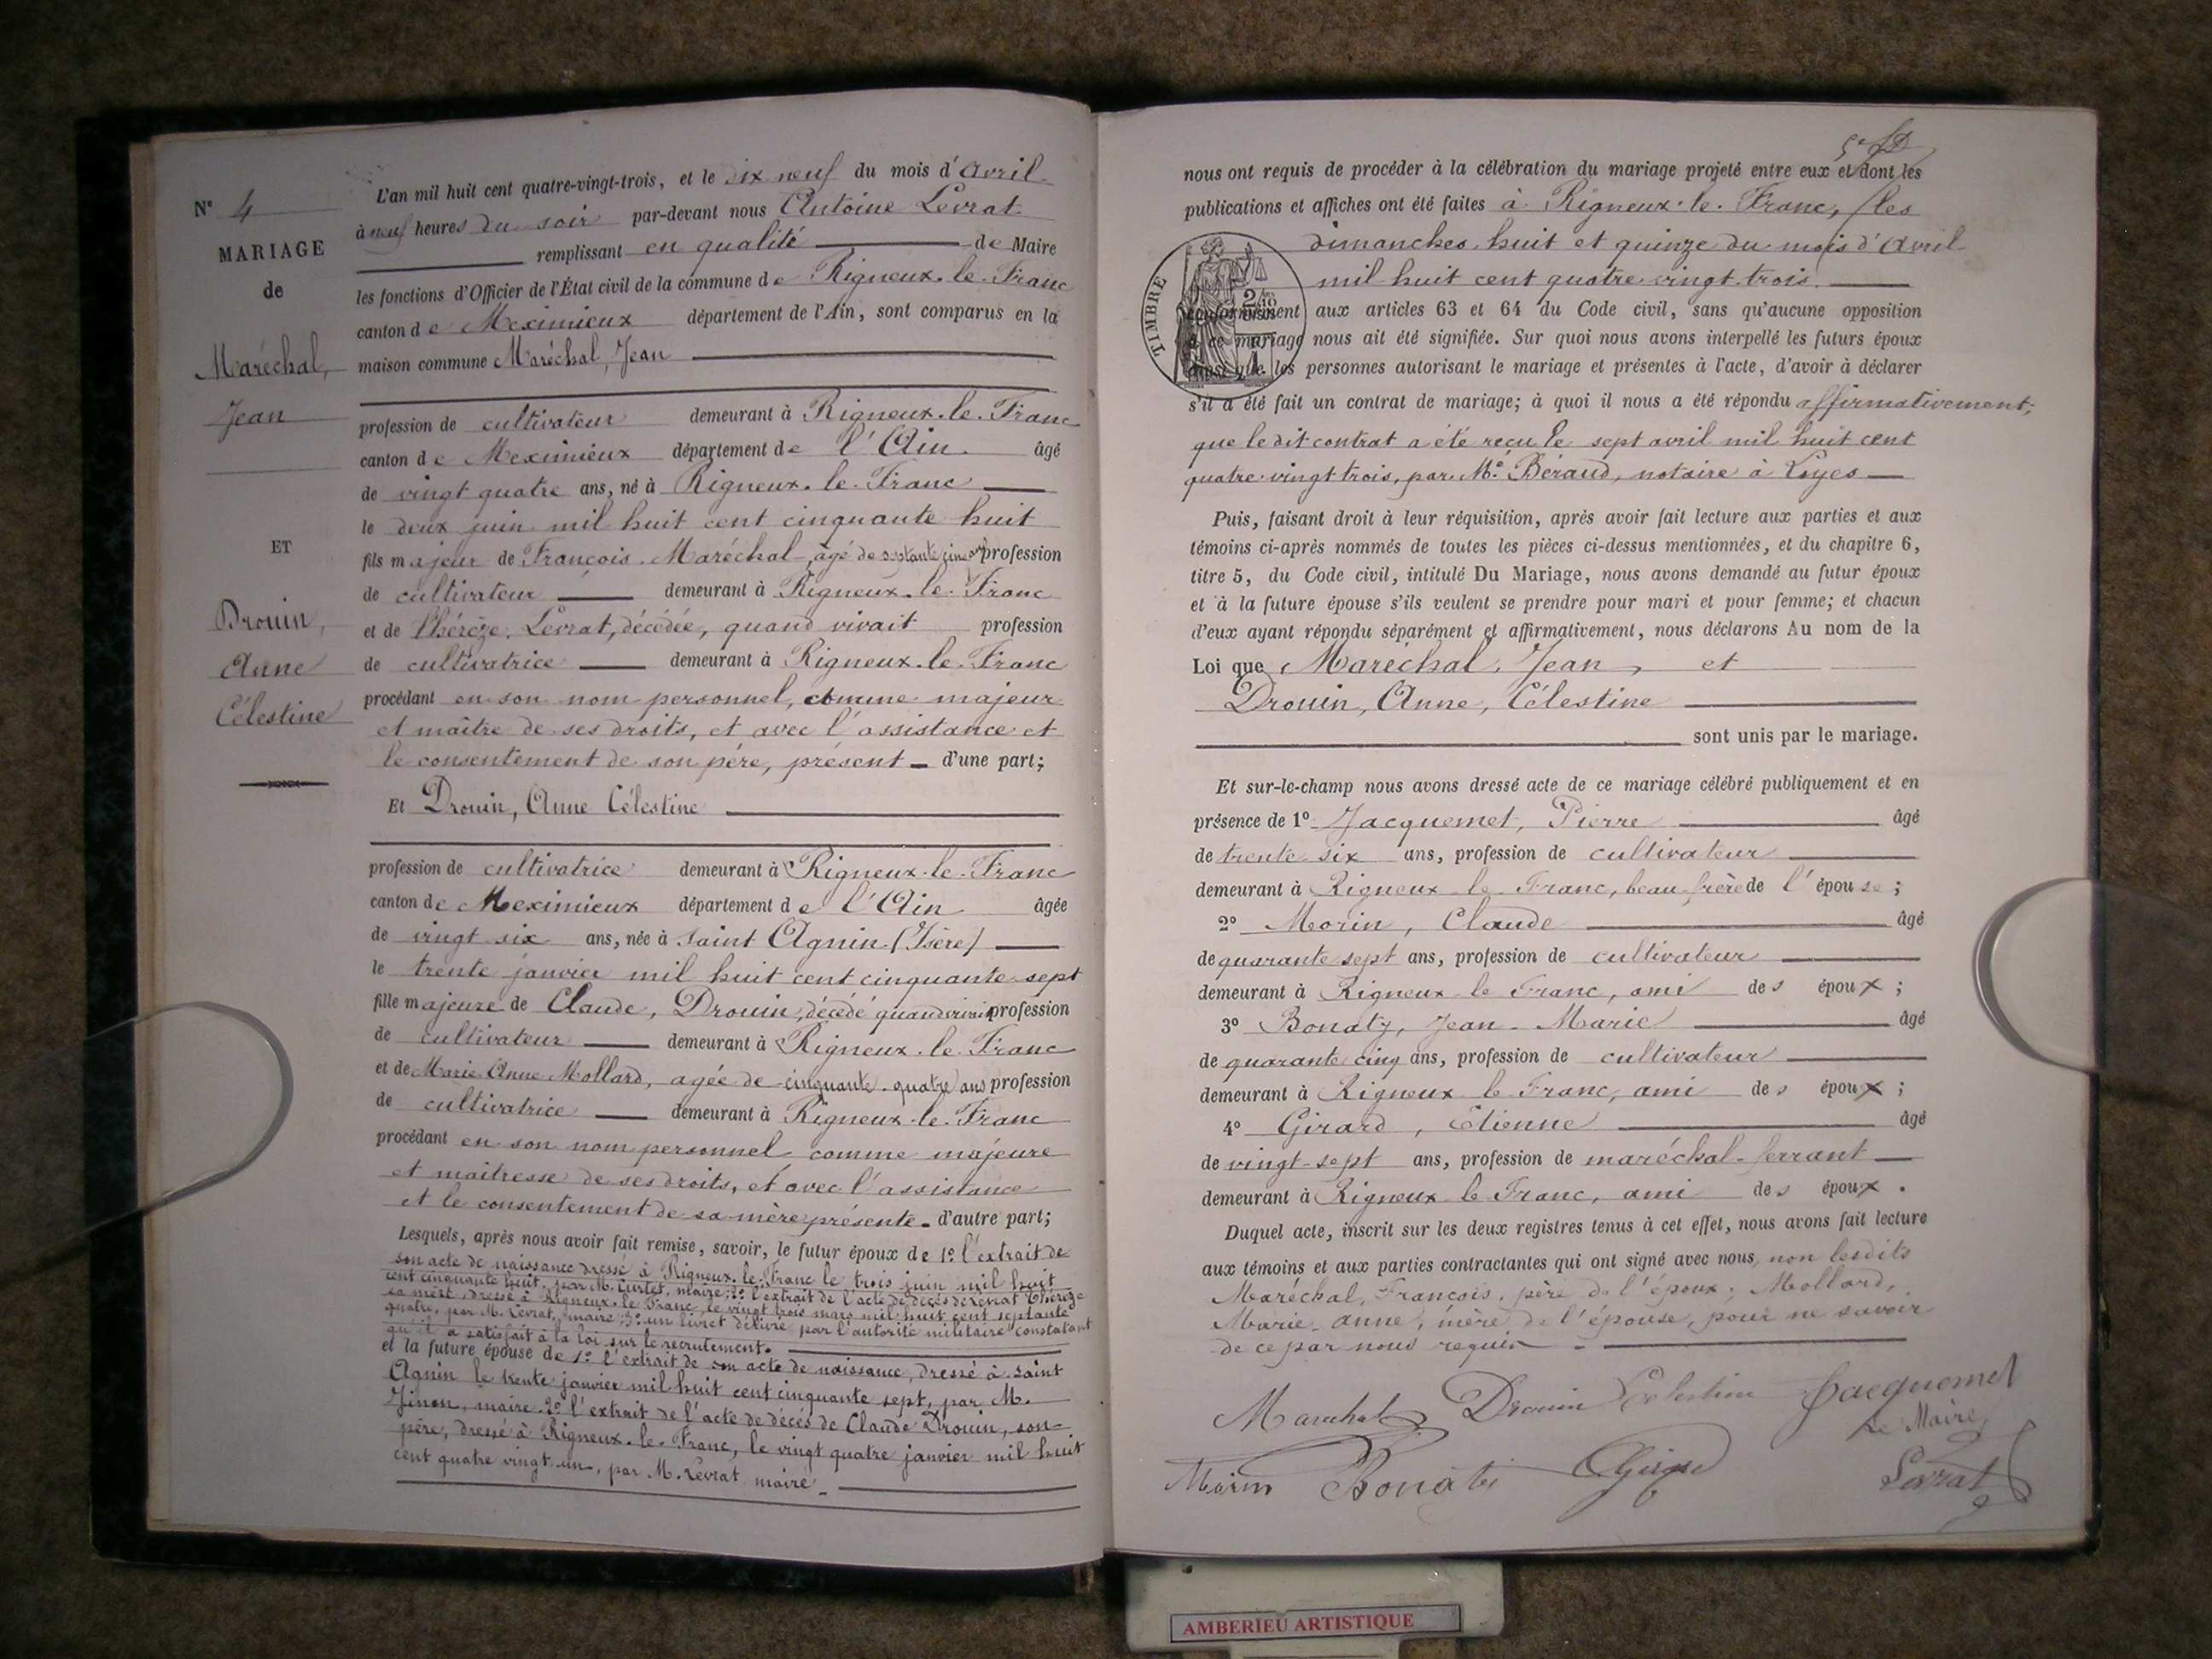 N° 4
MARIAGE
de
Maréchal,
Jean
ET
Drouin,
Anne
Célestine
L'an mil huit cent quatre-vingt-trois, et le dix neuf du mois d'avril
à neuf heures du soir par-devant nous Antoine Levrat
remplissant en qualité de Maire
les fonctions d'Officier de l'État civil de la commune de Rigneux-le-Franc
canton de Meximieux département de l'Ain, sont comparus en la
maison commune Maréchal, Jean
profession de cultivateur demeurant à Rigneux-le-Franc
canton de Meximieux département de l'Ain. âgé
de vingt quatre ans, né à Rigneux-le-Franc
le deux juin mil huit cent cinquante huit
fils majeur de François Maréchal, âgé de septante cinq ans profession
de cultivateur demeurant à Rigneux-le-Franc
et de Thérèze Levrat, décédée, quand vivait profession
de cultivatrice demeurant à Rigneux-le-Franc
procédant en son nom personnel, comme majeur
et maître de ses droits, et avec l'assistance et
le consentement de son père, présent d'une part;
Et Drouin, Anne Célestine
profession de cultivatrice demeurant à Rigneux-le-Franc
canton de Meximieux département de l'Ain âgée
de vingt six ans, née à Saint Agnin (Isère)
le trente janvier mil huit cent cinquante sept
fille majeure de Claude, Drouin, décédé quand vivait profession
de cultivateur demeurant à Rigneux-le-Franc
et de Marie Anne Mollard, agée de cinquante quatre ans profession
de cultivatrice demeurant à Rigneux-le-Franc
procédant en son nom personnel comme majeure
et maitresse de ses droits, et avec l'assistance
et le consentement de sa mère présente d'autre part;
Lesquels, après nous avoir fait remise, savoir, le futur époux de 1° l'extrait de
son acte de naissance dressé à Rigneux-le-Franc le trois juin mil huit
cent cinquante huit, par M. Curtet, maire; 2° l'extrait de l'acte de décès de Levrat Thérèze
sa mère, dressé à Rigneux-le-Franc, le vingt trois mars mil huit cent septante
quatre, par M. Levrat, maire; 3° un livret délivré par l'autorité militaire constatant
qu'il a satisfait à la loi sur le recrutement.
et la future épouse de 1° l'extrait de son acte de naissance, dressé à Saint
Agnin le trente janvier mil huit cent cinquante sept, par M.
maire. 2° l'extrait de l'acte de décès de Claude Drouin, son
père, dressé à Rigneux-le-Franc, le vingt quatre janvier mil huit
cent quatre vingt un, par M. Levrat maire
nous ont requis de procéder à la célébration du mariage projeté entre eux et dont les
publications et affiches ont été faites à Rigneux-le-Franc, les
dimanches huit et quinze du mois d'avril
mil huit cent quatre vingt trois.
TIMBRE
conformément aux articles 63 et 64 du Code civil, sans qu'aucune opposition
à ce mariage nous ait été signifiée. Sur quoi nous avons interpellé les futurs époux
ainsi que les personnes autorisant le mariage et présentes à l'acte, d'avoir à déclarer
s'il a été fait un contrat de mariage; à quoi il nous a été répondu affirmativement;
que le dit contrat a été reçu le sept avril mil huit cent
quatre vingt trois, par Me Béraud, notaire à Loyes
Puis, faisant droit à leur réquisition, après avoir fait lecture aux parties et aux
témoins ci-après nommés de toutes les pièces ci-dessus mentionnées, et du chapitre 6,
titre 5, du Code civil, intitulé Du Mariage, nous avons demandé au futur époux
et à la future épouse s'ils veulent se prendre pour mari et pour femme; et chacun
d'eux ayant répondu séparément et affirmativement, nous déclarons Au nom de la
Loi que Maréchal, Jean, et
Drouin, Anne, Célestine
sont unis par le mariage.
Et sur-le-champ nous avons dressé acte de ce mariage célébré publiquement et en
présence de 1° Jacquemet, Pierre âgé
de trente six ans, profession de cultivateur
demeurant à Rigneux le Franc, beau frère de l'épouse;
2° Morin, Claude âgé
de quarante sept ans, profession de cultivateur
demeurant à Rigneux le Franc, ami des époux;
3° Bonaty, Jean-Marie âgé
de quarante cinq ans, profession de cultivateur
demeurant à Rigneux le Franc, ami des époux;
4° Girard, Etienne âgé
de vingt-sept ans, profession de maréchal-ferrant
demeurant à Rigneux le Franc, ami des époux.
Duquel acte, inscrit sur les deux registres tenus à cet effet, nous avons fait lecture
aux témoins et aux parties contractantes qui ont signé avec nous, non lesdits
Maréchal, François, père de l'époux; Mollard,
Marie-anne, mère de l'épouse, pour ne savoir
de ce par nous requis
Marechal Drouin Celestine Jacquemet
Le Maire
Morin Bonati Girard Levrat
AMBERIEU ARTISTIQUE